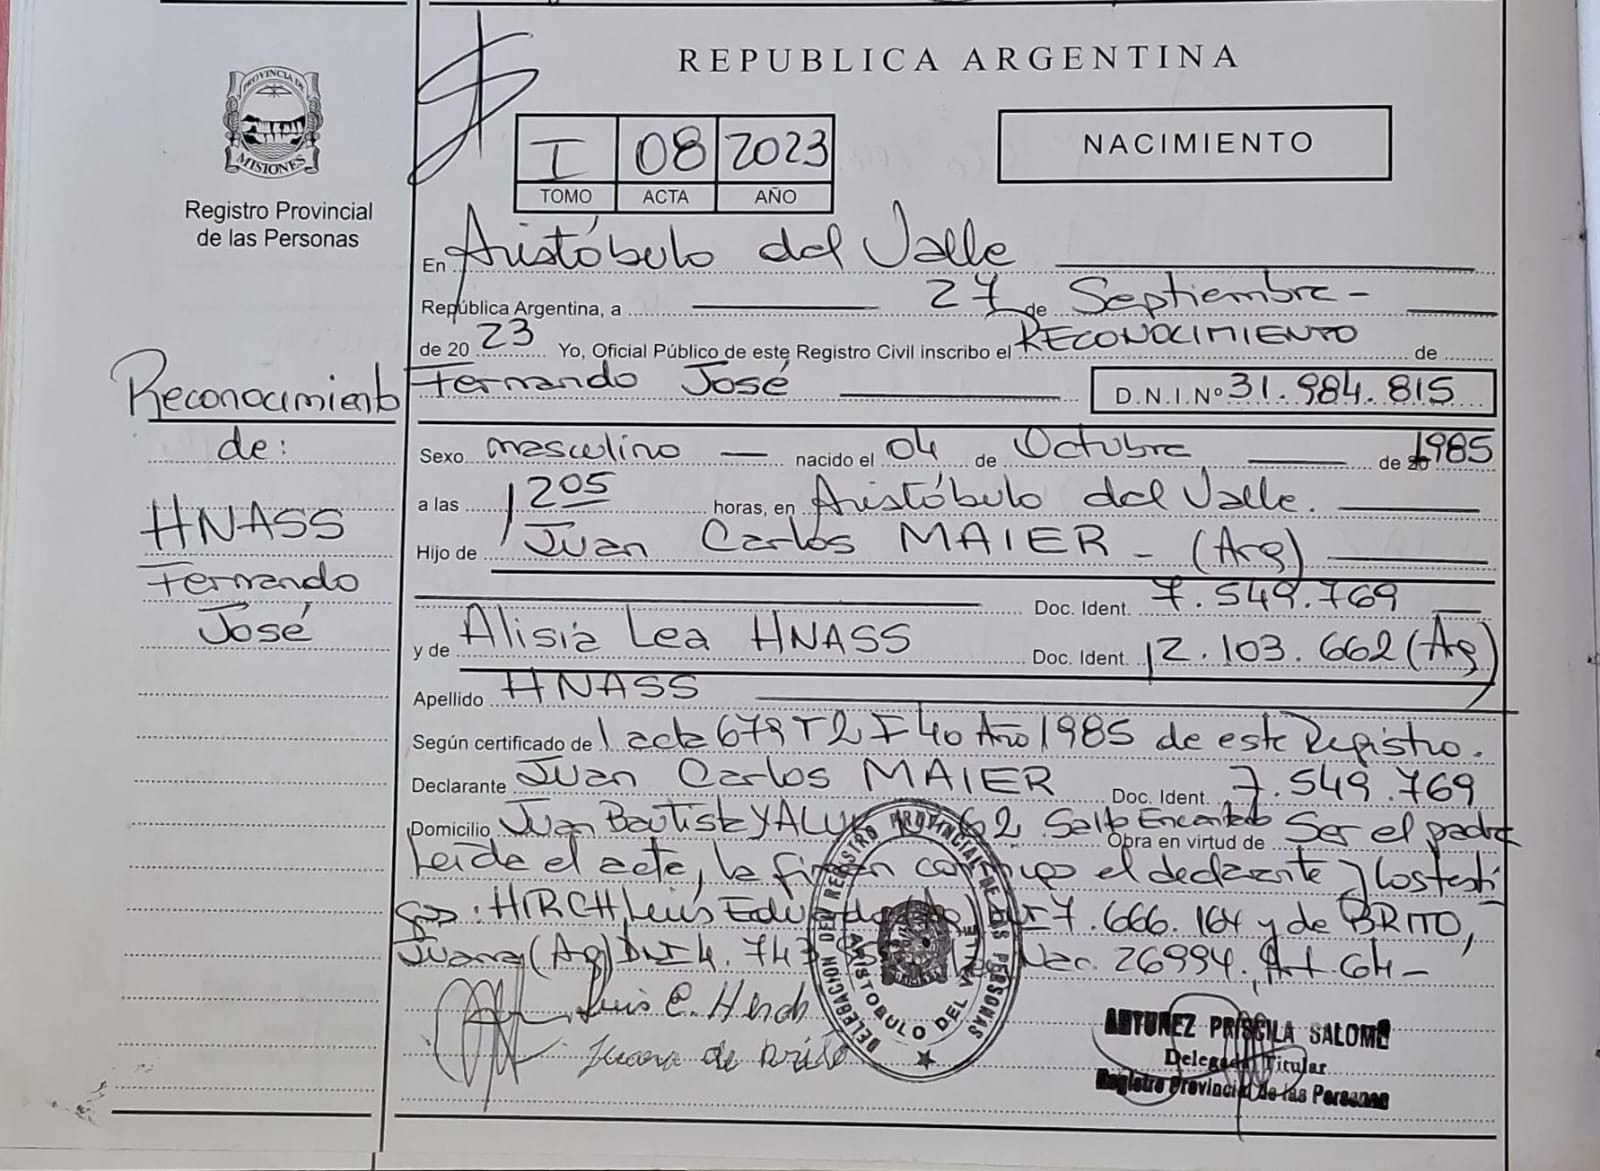 REPUBLICA ARGENTINA
PROVINCIA DE
MISIONES
Registro Provincial
de las Personas
I 08 2023
TOMO ACTA AÑO
NACIMIENTO
En Aristóbulo del Valle
República Argentina, a 27 de Septiembre -
de 20 23 Yo, Oficial Público de este Registro Civil inscribo el RECONOCIMIENTO de
Fernando José D.N.I.Nº 31.984.815
Reconocimiento
de:
HNASS
Fernando
José
Sexo masculino nacido el 04 de Octubre de 1985
a las 1205 horas, en Aristóbulo del Valle.
Hijo de Juan Carlos MAIER - (Arg)
Doc. Ident. 7.549.769
y de Alisia Lea HNASS Doc. Ident. 12.103.662 (Arg)
Apellido HNASS
Según certificado de acta 679 T 2 F 40 Año 1985 de este Registro.
Declarante Juan Carlos MAIER Doc. Ident. 7.549.769
Domicilio Juan Bautista 62 Salto Encantado Obra en virtud de Ser el padre
Leída el acta, la firman conmigo el declarante y los testi
gos: HIRCH, Luis Eduardo 7.666.164 y de BRITO,
Juana (Arg) DNI 4.743 Nac. 26994. Art. 64-
Luis E. Hirch
Juana de Brito
DELEGACION DEL REGISTRO PROVINCIAL DE LAS PERSONAS
ARISTOBULO DEL VALLE
ANTUNEZ PRISCILA SALOME
Delegada Titular
Registro Provincial de las Personas